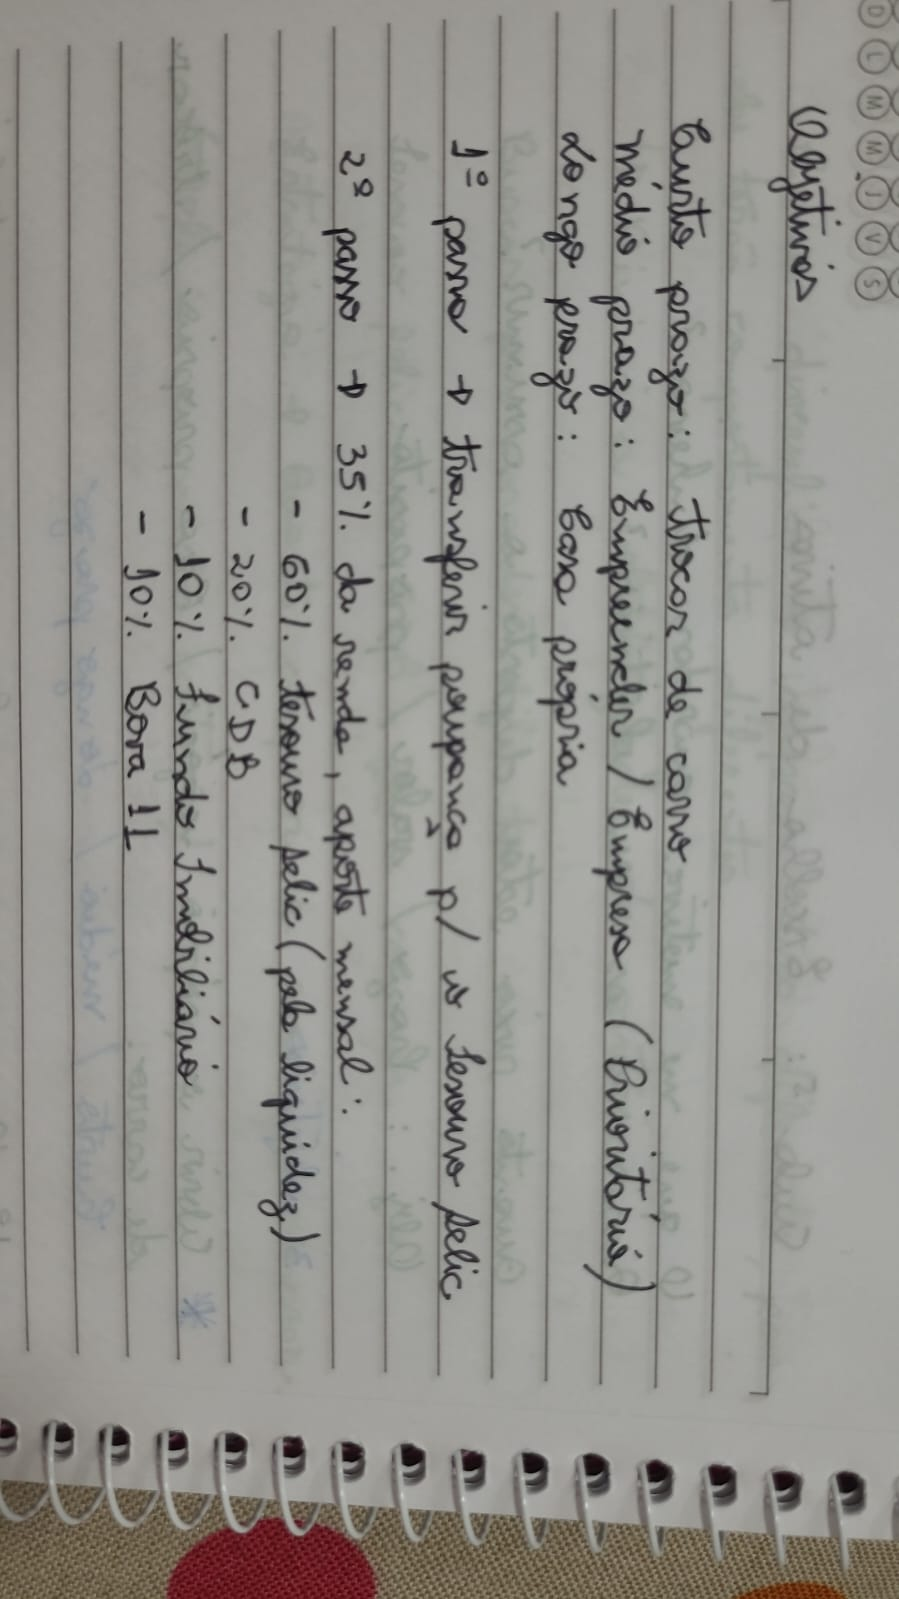 D L M M J V S
Objetivos
Curto prazo: trocar de carro
médio prazo: Empreender / Empresa (Prioritário)
Longo prazo: Casa própria
1º passo → transferir poupança p/ o tesouro selic
2º passo → 35% da renda, aporte mensal:
- 60% tesouro selic (pela liquidez)
- 20% CDB
- 10% Fundo Imobiliário
- 10% Bova 11